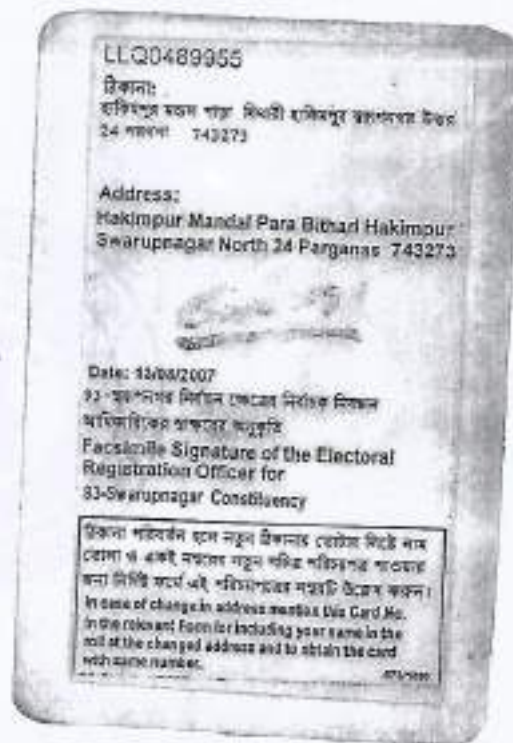 LLQ0489955
ঠিকানা:
হাকিমপুর মন্ডল পাড়া বিথারী হাকিমপুর স্বরূপনগর উত্তর
24 পরগনা 743273
Address:
Hakimpur Mandal Para Bithari Hakimpur
Swarupnagar North 24 Parganas 743273
Date: 13/08/2007
93-স্বরূপনগর নির্বাচন ক্ষেত্রের নির্বাচক নিবন্ধন
আধিকারিকের স্বাক্ষরের অনুকৃতি
Facsimile Signature of the Electoral
Registration Officer for
93-Swarupnagar Constituency
ঠিকানা পরিবর্তন হলে নতুন ঠিকানায় ভোটার লিস্টে নাম
তোলা ও একই নম্বরের নতুন সচিত্র পরিচয়পত্র পাওয়ার
জন্য নির্দিষ্ট ফর্মে এই পরিচয়পত্রের নম্বরটি উল্লেখ করুন।
In case of change in address mention this Card No.
in the relevant Form for including your name in the
roll at the changed address and to obtain the card
with same number.